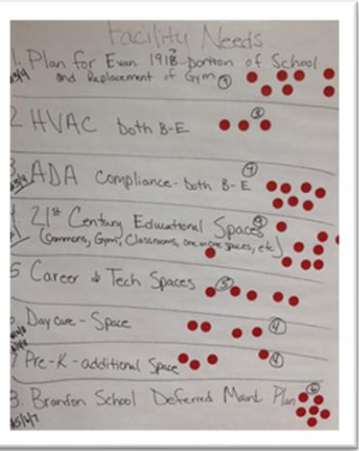 Facility Needs
1. Plan for Evan 1918 portion of School
and Replacement of Gym
2 HVAC both B-E
3. ADA Compliance - both B-E
4 21st Century Educational Spaces
(Commons, Gym, Classrooms, one more spaces, etc)
5. Career & Tech Spaces
Day care - Space
Pre-K - additional Space
8. Brandon School Deferred Maint Plan